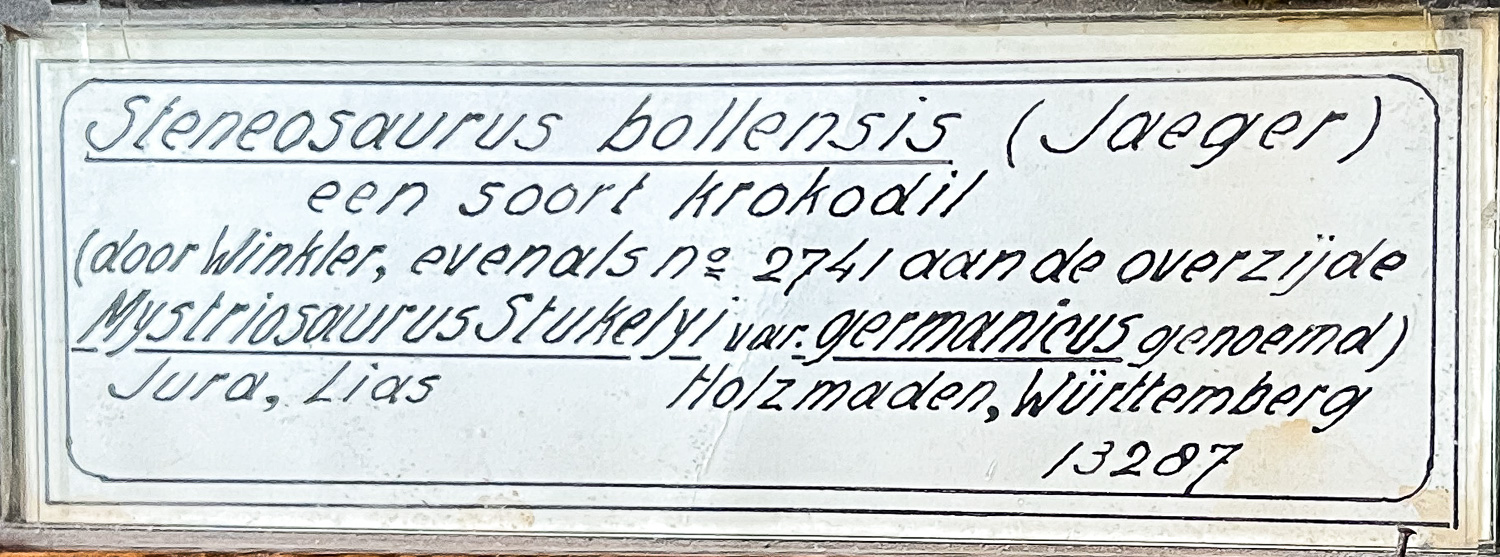 Steneosaurus bollensis (Jaeger)
een soort krokodil
(door Winkler, evenals nº 2741 aan de overzijde
Mystriosaurus Stukelyi var. germanicus genoemd)
Jura, Lias Holzmaden, Württemberg
13287